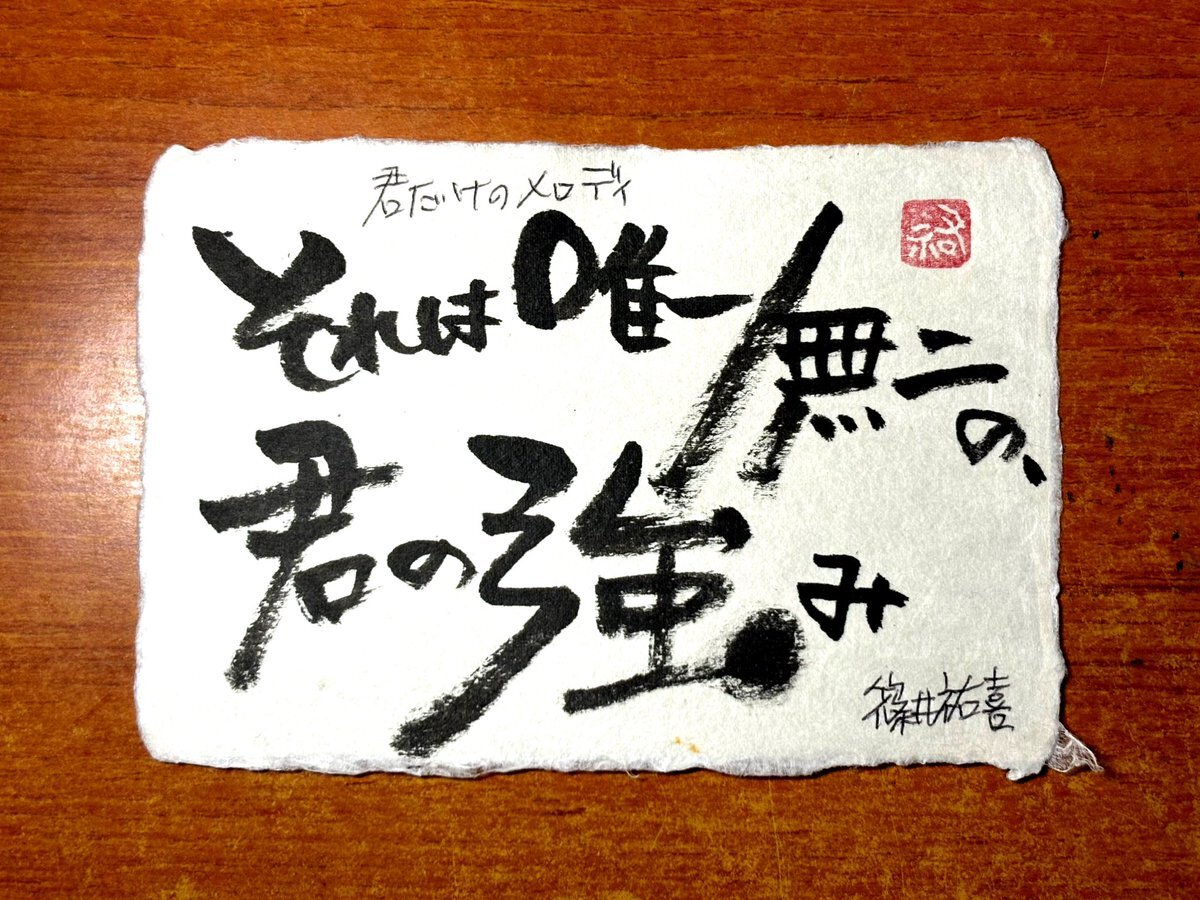 君だけのメロディ
それは唯一無二の、
君の強み
篠井祐喜
祐